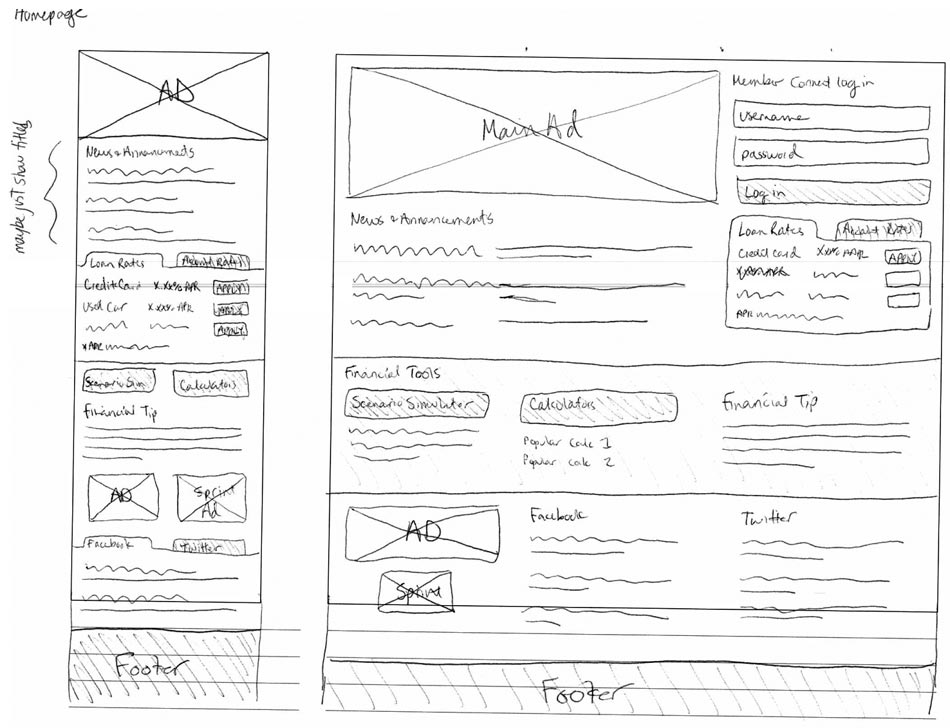 Homepage
AD
maybe just show titles
News & Announcements
Loan Rates
Credit Card X.XX% APR APPLY
Used Car X.XX% APR APPLY
APPLY
*APR
Scenario Sim
Calculators
Financial Tip
AD
Sprint
Ad
Facebook
Twitter
Footer
Main Ad
Member Connect log in
username
password
Log in
News & Announcements
Loan Rates
Credit Card X.XX% APR APPLY
APR
Financial Tools
Scenario Simulator
Calculators
Popular Calc 1
Popular Calc 2
Financial Tip
AD
Sprint
Facebook
Twitter
Footer